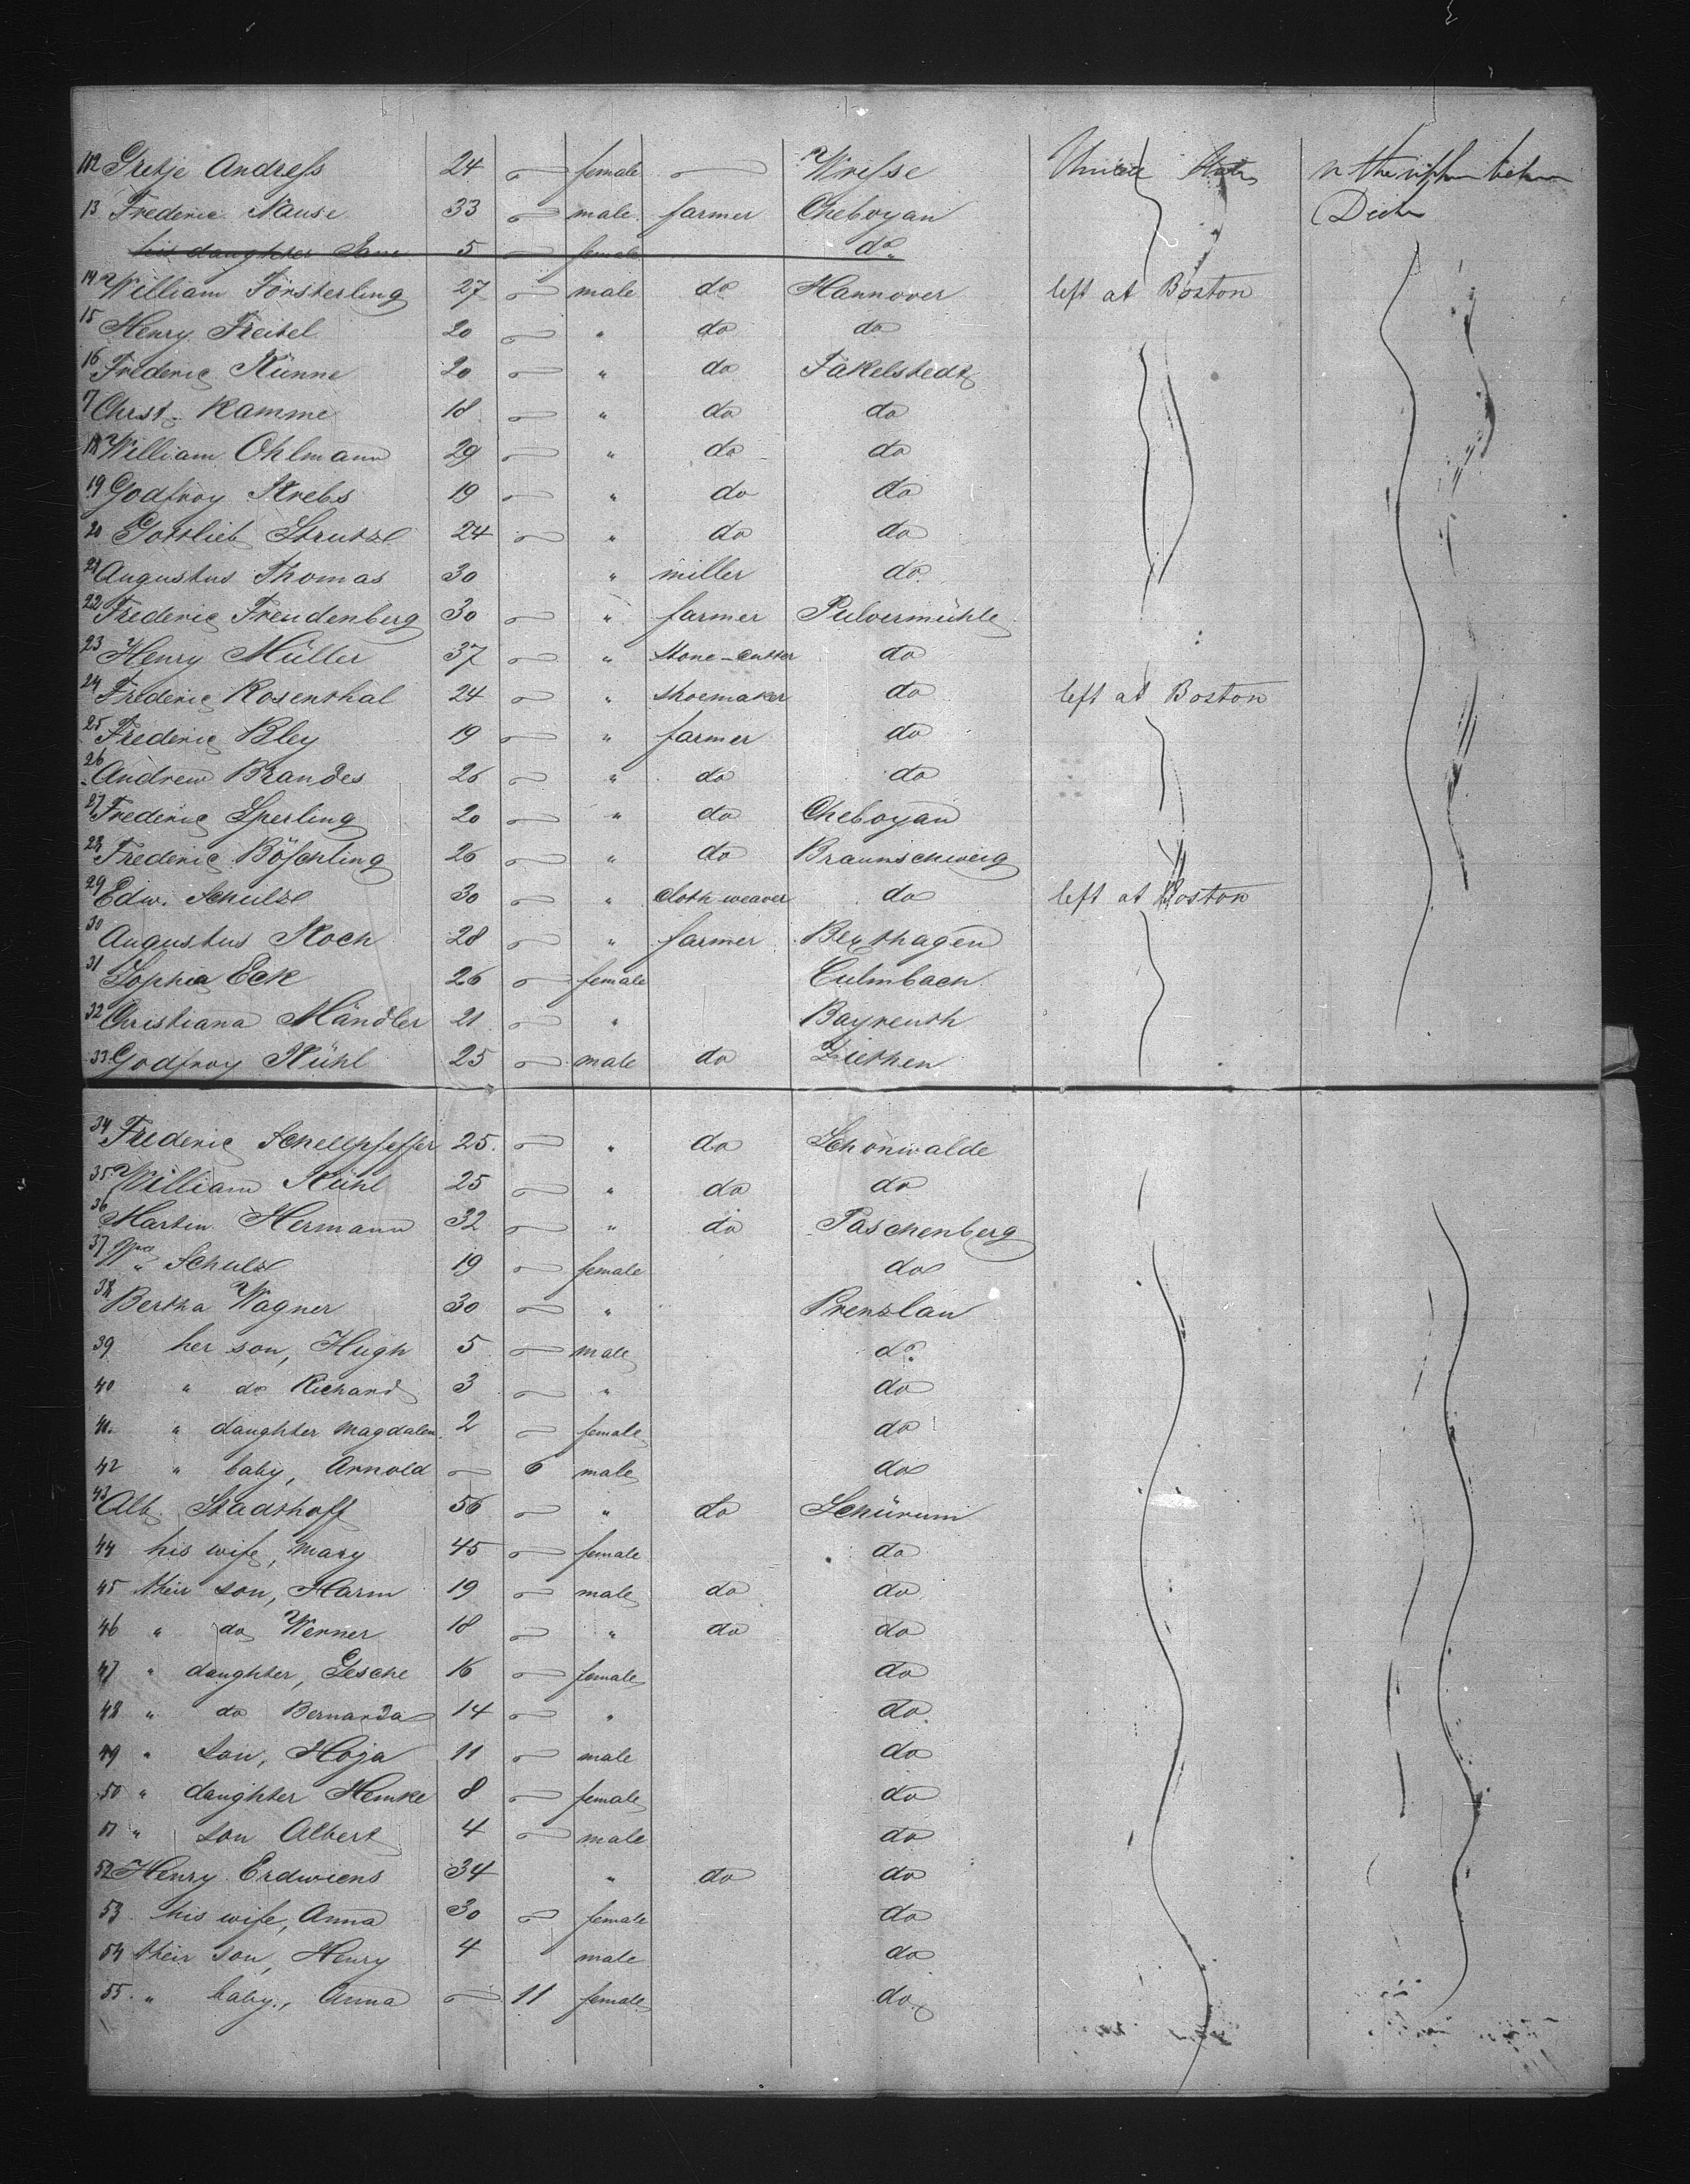 112 Gretje Andreſs 24 female Wreſse United States in the upper between
13 Frederic Krause 33 male farmer Cheboyan Decks
his daughter Jane 5 female do
14 William Försterling 27 male do Hannover left at Boston
15 Henry Freitel 20 " do do
16 Frederic Künne 20 " do Fakelstedt
17 Chrst. Kamme 18 " do do
18 William Ohlmann 29 " do do
19 Godfroy Krebs 19 " do do
20 Gottlieb Strutze 24 " do do
21 Augustus Thomas 30 " miller do
22 Frederic Freudenberg 30 " farmer Pulvermühle
23 Henry Müller 37 " Stone-cutter do
24 Frederic Rosenthal 24 " Shoemaker do left at Boston
25 Frederic Bley 19 " farmer do
26 Andrew Brandes 26 " do do
27 Frederic Sperling 20 " do Cheboyan
28 Frederic Böſchling 26 " do Braunschweig
29 Edw. Schulze 30 " Cloth weaver do left at Boston
30 Augustus Koch 28 " farmer
31 Sophia Eck 26 female Culmbach
32 Christiana Mändler 21 " Bayreuth
33 Godfroy Kühl 25 male do Ziethen
34 Frederic Schellpfeffer 25 " do Schönwalde
35 William Kühl 25 " do do
36 Martin Hermann 32 " do Paschenberg
37 Schulz 19 female do
38 Bertha Wagner 30 " Prenzlau
39 her son, Hugh 5 male do
40 " do Richard 3 " do
41. " daughter Magdalen. 2 female do
42 " baby, Arnold 6 male do
43 Alb. Stadthoff 56 " do Schürum
44 his wife, Mary 45 female do
45 their son, Harm 19 male do do
46 " do Werner 18 " do do
47 " daughter, Gesche 16 female do
48 " do Bernarda 14 " do
49 " son, Hoja 11 male do
50 " daughter Hemke 8 female do
51 " son Albert 4 male do
52 Henry Erdwiens 34 " do do
53 his wife, Anna 30 female do
54 their son, Henry 4 male do
55. " baby, Anna 11 female do